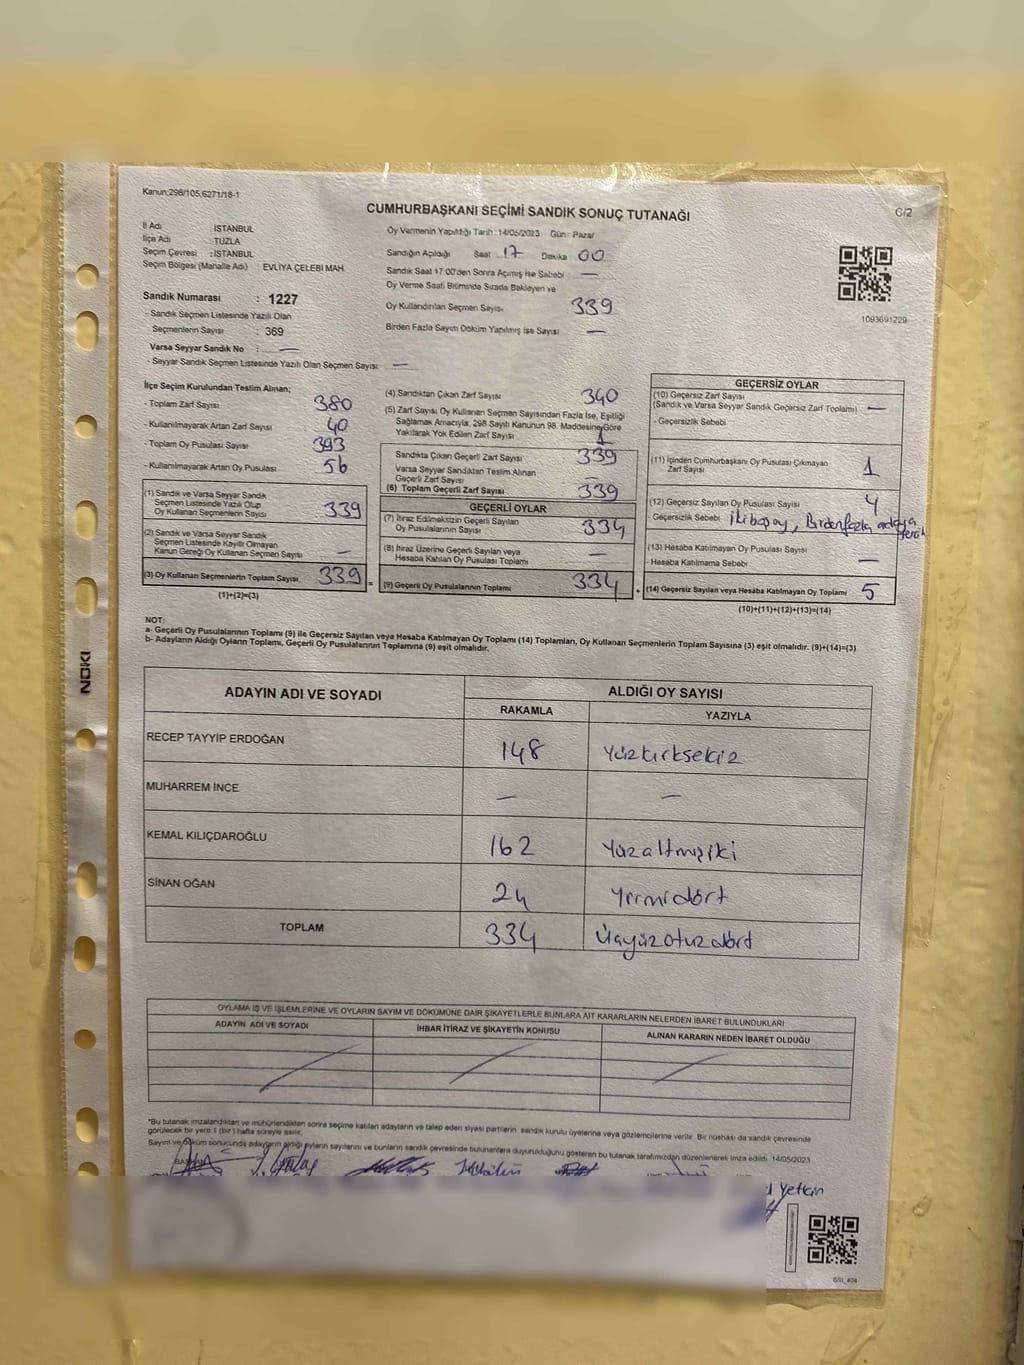 Kanun:298/105,6271/18-1
CUMHURBAŞKANI SEÇİMİ SANDIK SONUÇ TUTANAĞI
C/2
İl Adı : İSTANBUL
İlçe Adı : TUZLA
Seçim Çevresi : İSTANBUL
Seçim Bölgesi (Mahalle Adı) : EVLİYA ÇELEBİ MAH.
Sandık Numarası : 1227
- Sandık Seçmen Listesinde Yazılı Olan
Seçmenlerin Sayısı : 369
Varsa Seyyar Sandık No : —
- Seyyar Sandık Seçmen Listesinde Yazılı Olan Seçmen Sayısı : —
Oy Vermenin Yapıldığı Tarih : 14/05/2023 Gün : Pazar
Sandığın Açıldığı Saat 17 Dakika 00
Sandık Saat 17:00'den Sonra Açılmış İse Sebebi : —
Oy Verme Saati Bitiminde Sırada Bekleyen ve
Oy Kullandırılan Seçmen Sayısı 339
Birden Fazla Sayım Döküm Yapılmış ise Sayısı —
1093691229
İlçe Seçim Kurulundan Teslim Alınan;
- Toplam Zarf Sayısı 380
- Kullanılmayarak Artan Zarf Sayısı 40
- Toplam Oy Pusulası Sayısı 393
- Kullanılmayarak Artan Oy Pusulası 56
(1) Sandık ve Varsa Seyyar Sandık
Seçmen Listesinde Yazılı Olup
Oy Kullanan Seçmenlerin Sayısı 339
(2) Sandık ve Varsa Seyyar Sandık
Seçmen Listesinde Kayıtlı Olmayan
Kanun Gereği Oy Kullanan Seçmen Sayısı —
(3) Oy Kullanan Seçmenlerin Toplam Sayısı 339
(1)+(2)=(3)
(4) Sandıktan Çıkan Zarf Sayısı 340
(5) Zarf Sayısı Oy Kullanan Seçmen Sayısından Fazla İse, Eşitliği
Sağlamak Amacıyla; 298 Sayılı Kanunun 98. Maddesine Göre
Yakılarak Yok Edilen Zarf Sayısı 1
Sandıkta Çıkan Geçerli Zarf Sayısı 339
Varsa Seyyar Sandıktan Teslim Alınan
Geçerli Zarf Sayısı
(6) Toplam Geçerli Zarf Sayısı 339
GEÇERLİ OYLAR
(7) İtiraz Edilmeksizin Geçerli Sayılan
Oy Pusulalarının Sayısı 334
(8) İtiraz Üzerine Geçerli Sayılan veya
Hesaba Katılan Oy Pusulası Toplamı —
= (9) Geçerli Oy Pusulalarının Toplamı 334
GEÇERSİZ OYLAR
(10) Geçersiz Zarf Sayısı
(Sandık ve Varsa Seyyar Sandık Geçersiz Zarf Toplamı) —
- Geçersizlik Sebebi
(11) İçinden Cumhurbaşkanı Oy Pusulası Çıkmayan
Zarf Sayısı 1
(12) Geçersiz Sayılan Oy Pusulası Sayısı 4
- Geçersizlik Sebebi İki boş oy, Birden fazla adaya
(13) Hesaba Katılmayan Oy Pusulası Sayısı
- Hesaba Katılmama Sebebi —
+ (14) Geçersiz Sayılan veya Hesaba Katılmayan Oy Toplamı 5
(10)+(11)+(12)+(13)=(14)
NOT:
a- Geçerli Oy Pusulalarının Toplamı (9) ile Geçersiz Sayılan veya Hesaba Katılmayan Oy Toplamı (14) Toplamları, Oy Kullanan Seçmenlerin Toplam Sayısına (3) eşit olmalıdır. (9)+(14)=(3)
b- Adayların Aldığı Oyların Toplamı, Geçerli Oy Pusulalarının Toplamına (9) eşit olmalıdır.
NOKI
ADAYIN ADI VE SOYADI
ALDIĞI OY SAYISI
RAKAMLA YAZIYLA
RECEP TAYYİP ERDOĞAN 148 Yüzkırksekiz
MUHARREM İNCE — —
KEMAL KILIÇDAROĞLU 162 Yüzaltmışiki
SİNAN OĞAN 24 Yirmidört
TOPLAM 334 Üçyüzotuzdört
OYLAMA İŞ VE İŞLEMLERİNE VE OYLARIN SAYIM VE DÖKÜMÜNE DAİR ŞİKAYETLERLE BUNLARA AİT KARARLARIN NELERDEN İBARET BULUNDUKLARI
ADAYIN ADI VE SOYADI İHBAR İTİRAZ VE ŞİKAYETİN KONUSU ALINAN KARARIN NEDEN İBARET OLDUĞU
*Bu tutanak imzalandıktan ve mühürlendikten sonra seçime katılan adayların ve talep eden siyasi partilerin sandık kurulu üyelerine veya gözlemcilerine verilir. Bir nüshası da sandık çevresinde
görülecek bir yere 1 (bir) hafta süreyle asılır.
Sayım ve döküm sonucunda adayların aldığı oyların sayılarını ve bunların sandık çevresinde bulunanlara duyurulduğunu gösteren bu tutanak tarafımızdan düzenlenerek imza edildi. 14/05/2023
BAŞKAN
Yetkin
SSİ_404